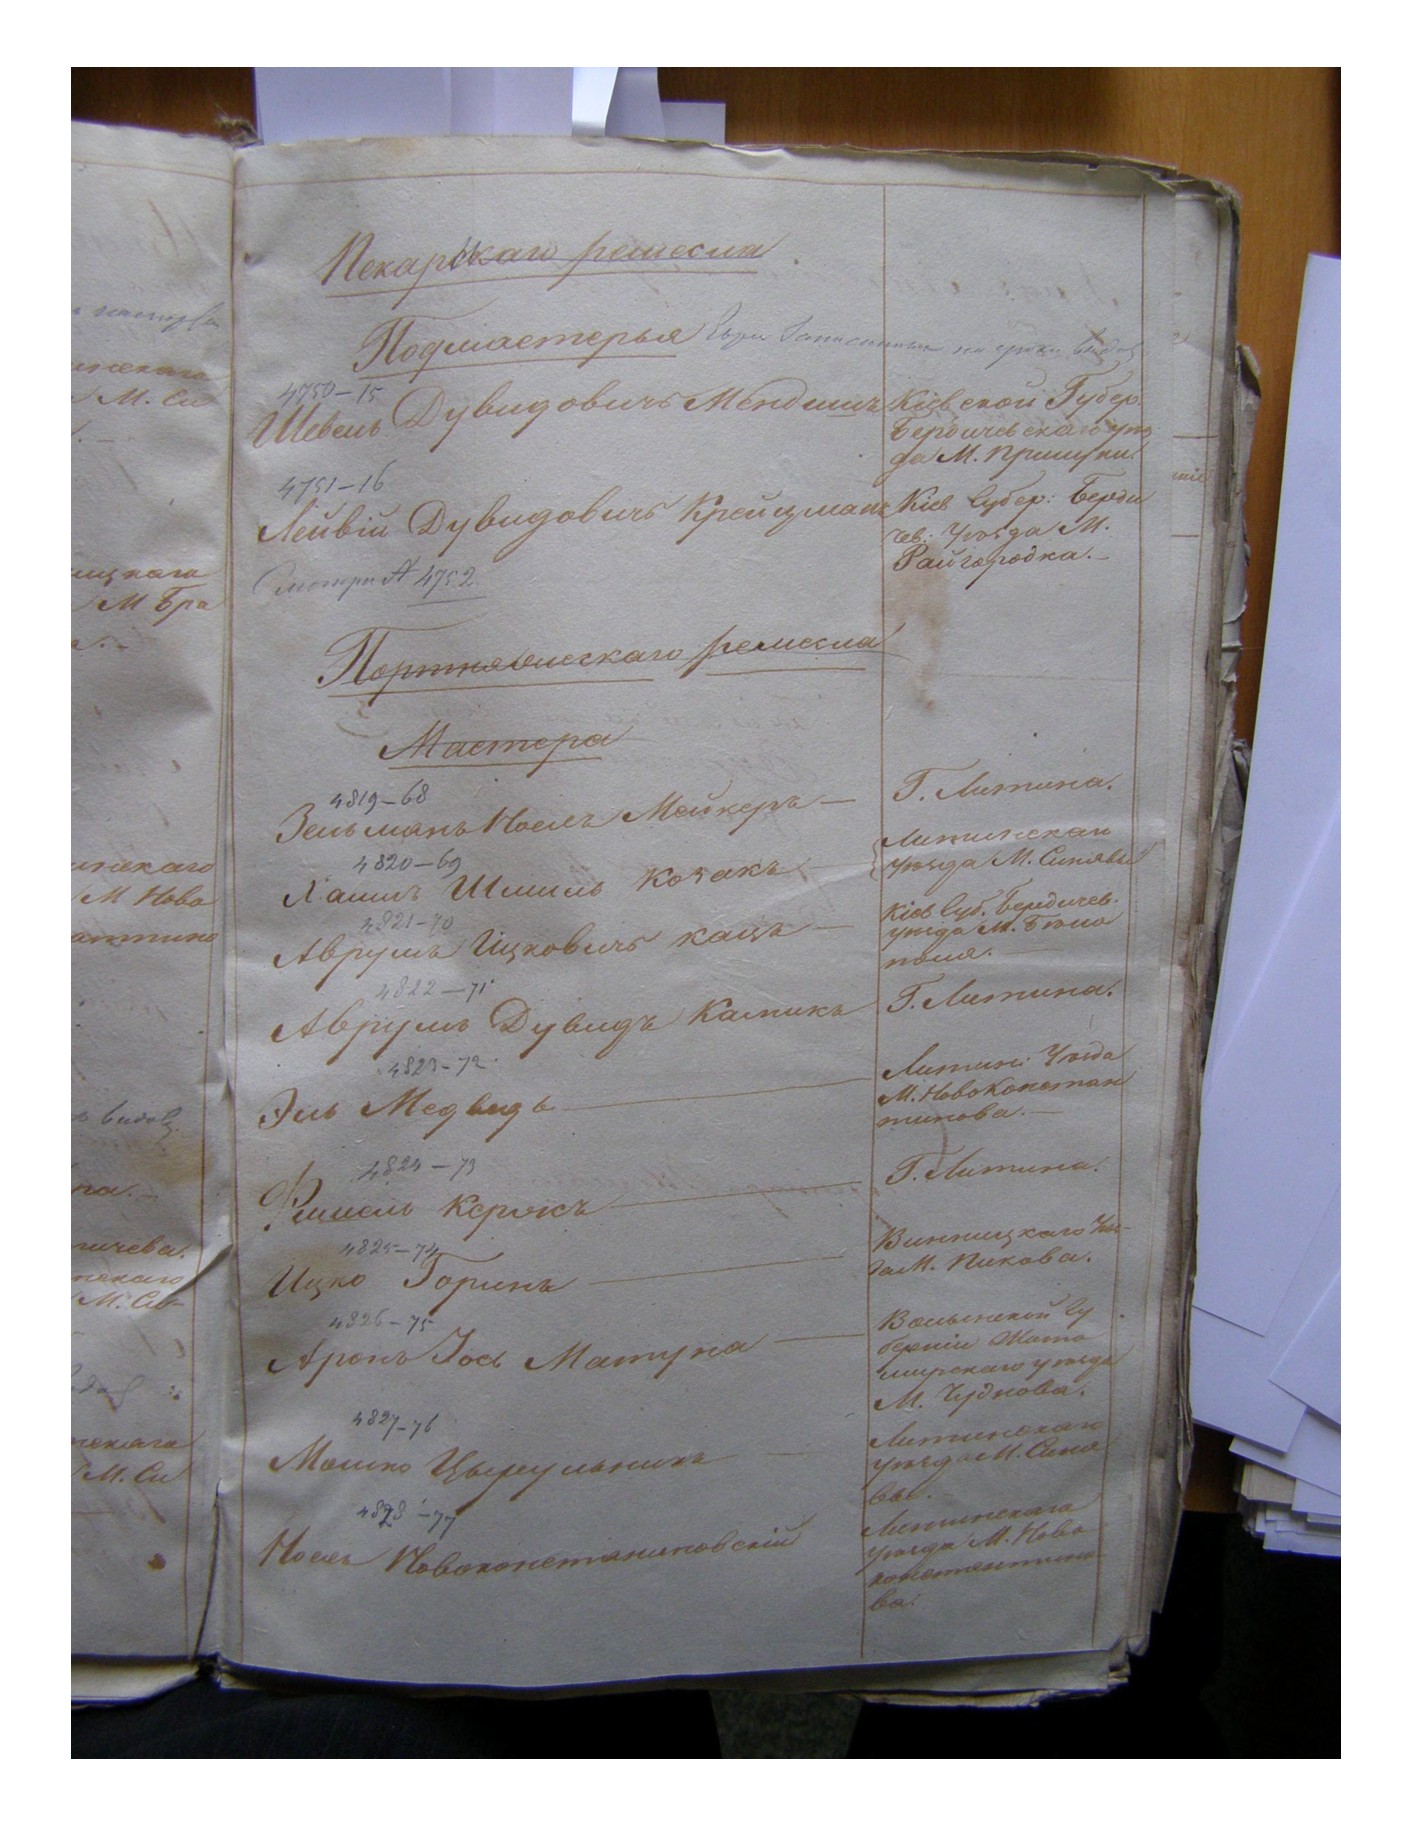 Пекарскаго ремесла
Подмастерья
4750-15
Шевель Дувидовичъ Мендишъ Кіевской Губер.
Бердичевскаго уѣз
да М. Пришуки.
4751-16
Лейвій Дувидовичъ Крейцманъ Кіев Губер: Берди
чев: Уѣзда М.
Райгородка.
Смотри № 4752.
Портновскаго ремесла
Мастера
4819-68
Зельманъ Иосль Мейкеръ — Г. Литина.
4820-69
Хаимъ Шмиль Козакъ Литинскаго
Уѣзда М. Синявы
4821-70
Аврумъ Ицковичъ Кацъ — Кіев Губ. Бердичев.
уѣзда М. Бѣло
поля.
4822-71
Аврумъ Дувидъ Калика Г. Литина.
4823-72
Эль Медвидь — Литин: Уѣзда
М. Новоконстан
тинова.
4824-73
Фишель — Г. Литина.
4825-74
Ицко Горинь — Винницкаго Уѣз-
да М. Пикова.
4826-75
Аронъ Іось — Волынской Гу
берніи Жито
мирскаго уѣзда
М. Чуднова.
4827-76
Мошко Цырульникъ — Литинскаго
уѣзда М. Синя
вы.
4828-77
Иосль Новоконстантиновскій Литинскаго
уѣзда М. Ново
константино
ва.